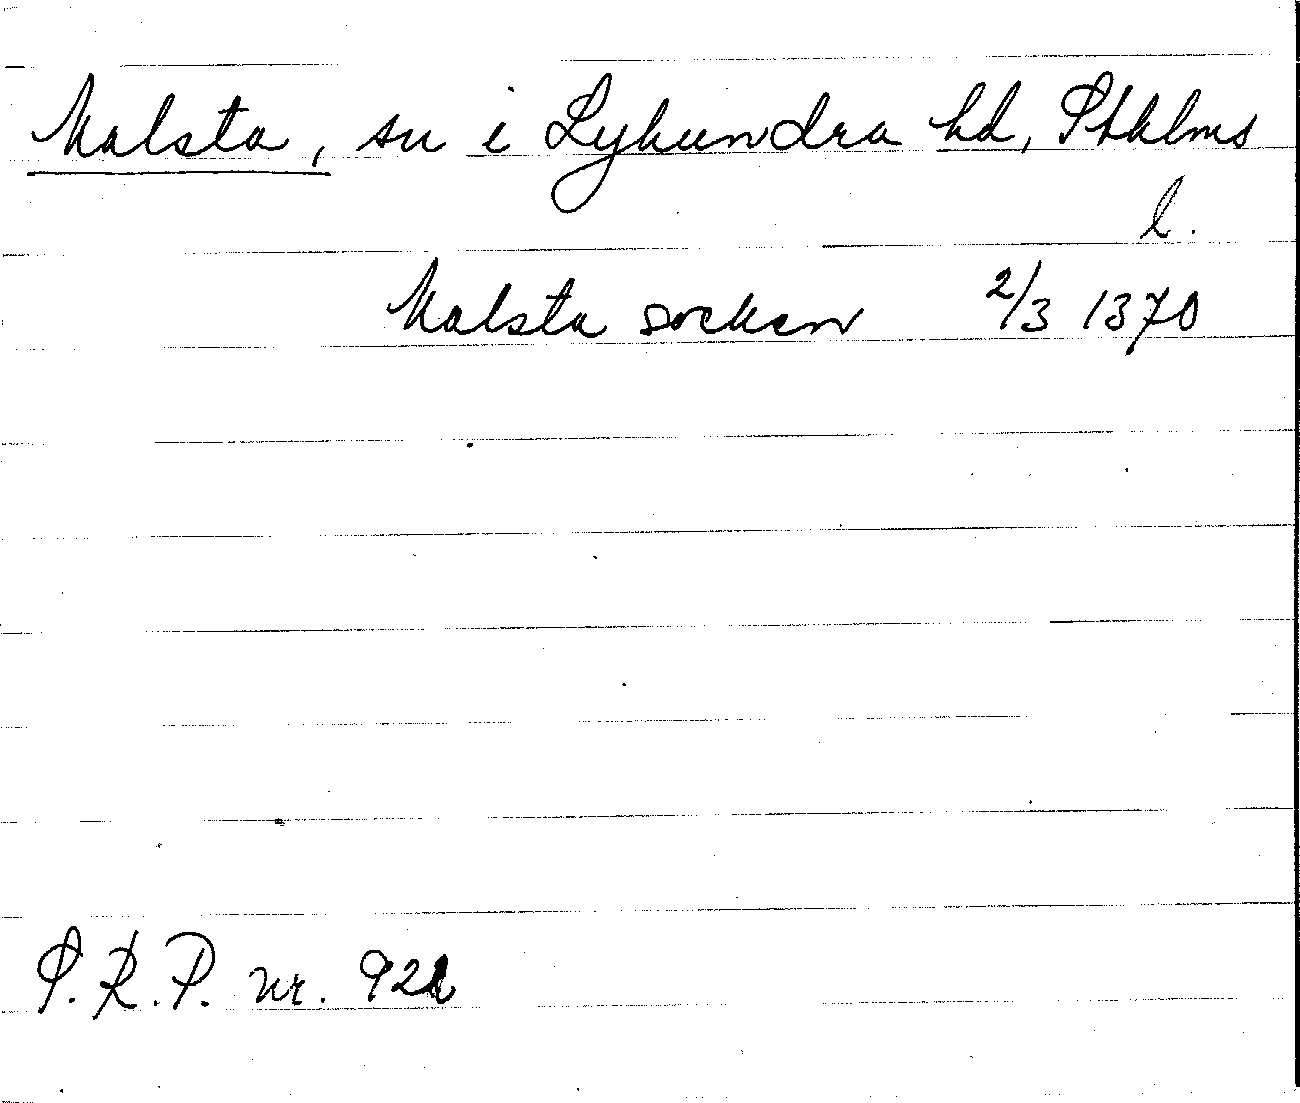 Malsta, sn i Lyhundra hd, Sthlms
l.
Malsta socken 2/3 1370
S.R.P. nr.